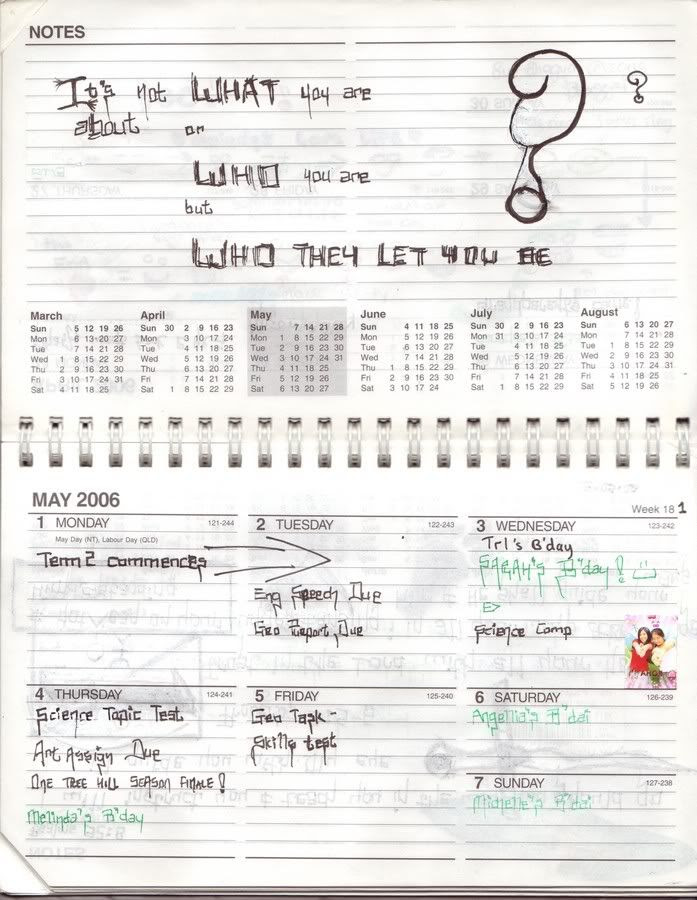 NOTES
It's not WHAT you are
about or
WHO you are
but
WHO THEY LET YOU BE
? ?
March April May June July August
Sun 5 12 19 26 Sun 30 2 9 16 23 Sun 7 14 21 28 Sun 4 11 18 25 Sun 30 2 9 16 23 Sun 6 13 20 27
Mon 6 13 20 27 Mon 3 10 17 24 Mon 1 8 15 22 29 Mon 5 12 19 26 Mon 31 3 10 17 24 Mon 7 14 21 28
Tue 7 14 21 28 Tue 4 11 18 25 Tue 2 9 16 23 30 Tue 6 13 20 27 Tue 4 11 18 25 Tue 1 8 15 22 29
Wed 1 8 15 22 29 Wed 5 12 19 26 Wed 3 10 17 24 31 Wed 7 14 21 28 Wed 5 12 19 26 Wed 2 9 16 23 30
Thu 2 9 16 23 30 Thu 6 13 20 27 Thu 4 11 18 25 Thu 1 8 15 22 29 Thu 6 13 20 27 Thu 3 10 17 24 31
Fri 3 10 17 24 31 Fri 7 14 21 28 Fri 5 12 19 26 Fri 2 9 16 23 30 Fri 7 14 21 28 Fri 4 11 18 25
Sat 4 11 18 25 Sat 1 8 15 22 29 Sat 6 13 20 27 Sat 3 10 17 24 Sat 1 8 15 22 29 Sat 5 12 19 26
MAY 2006
Week 18 1
1 MONDAY 121-244
May Day (NT), Labour Day (QLD)
Term 2 commences
2 TUESDAY 122-243
Eng Speech Due
Geo Report Due
3 WEDNESDAY 123-242
Tri's B'day
SARAH'S B'day !
Science Comp
4 THURSDAY 124-241
Science Topic Test
Art Assign Due
ONE TREE HILL SEASON FINALE!
Melinda's B'day
5 FRIDAY 125-240
Geo Task -
Skills test
6 SATURDAY 126-239
Angellia's B'dai
7 SUNDAY 127-238
Michelle's B'dai